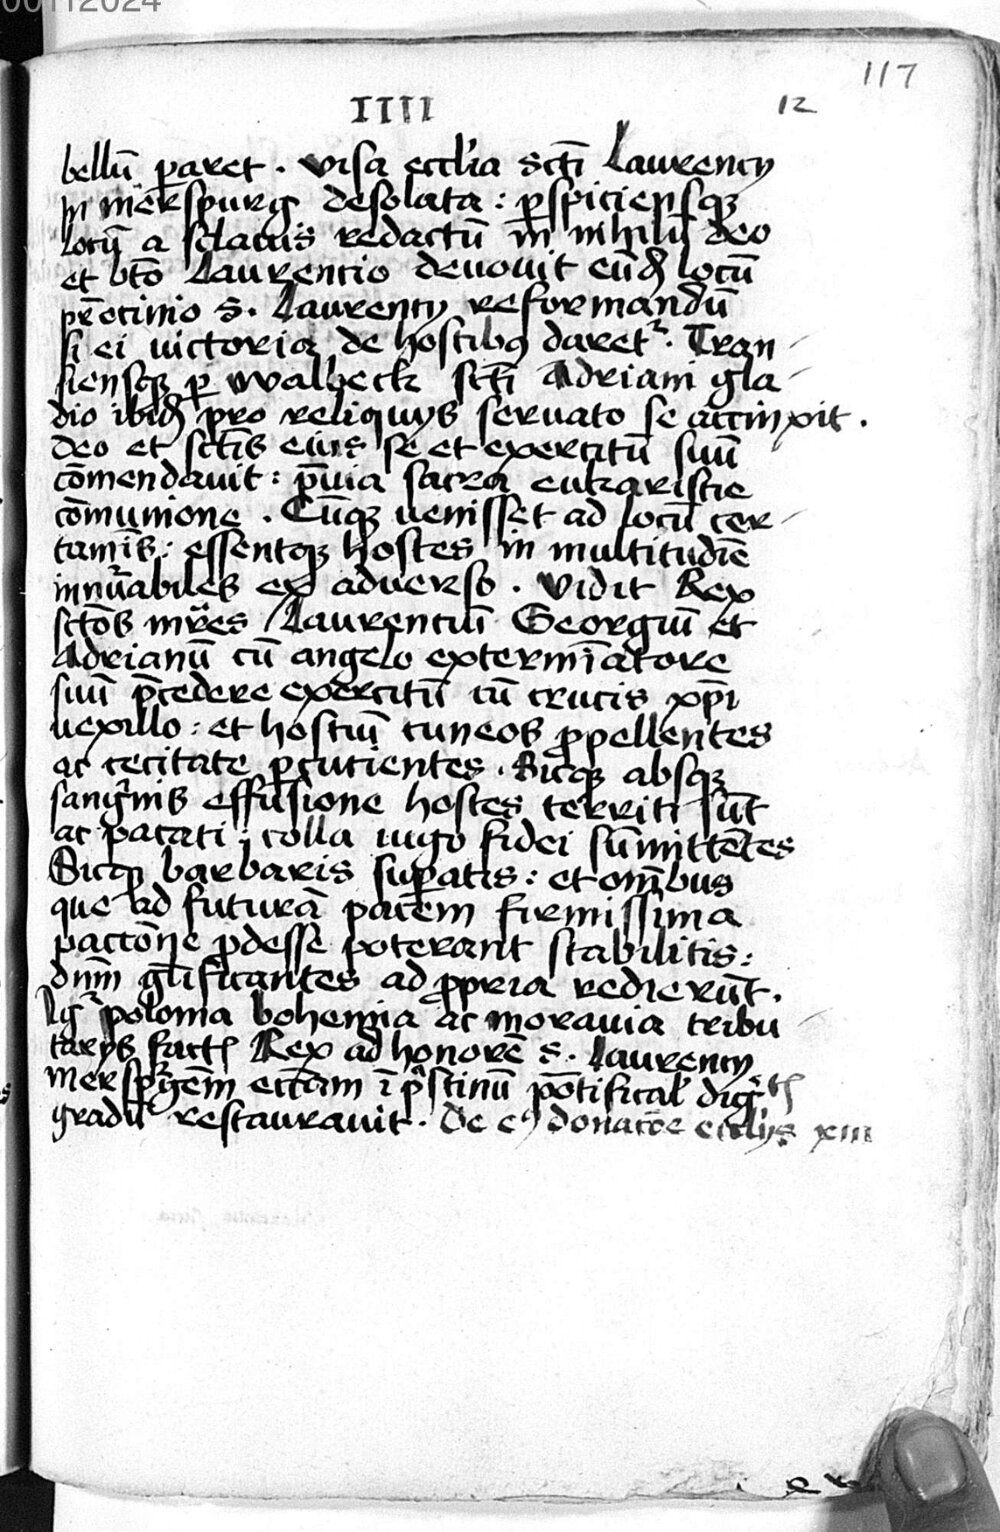 00112024
117
IIII 12
bellū ꝑaret . visa eccl'ia sc̄ti Laurencij
in mērspurg desolata : ꝑspiciensqꝫ
locū a sclauis redactū in nihilū deo
et bt̄o Laurencio deuouit eūdꝫ locū
s . Laurencij reformandū
si ei victoria de hostibꝰ daret᷑ . Tran
siensqꝫ ꝑ walbeck sc̄ti Adriani gla
dio ibidꝫ pro reliquijs seruato se accinxit .
deo et sc̄tis eius se et exercitū suū
cōmendauit : p̄uia sacra eukaristie
cōmunione . Cūqꝫ uenisset ad locū cer
tamīs : essentqꝫ hostes in multitudīe
innūabiles ex aduerso . vidit Rex
sc̄tos mr̄es Laurenciū Georgiū et
Adrianū cū angelo extermīatore
suū p̄cedere exercitū cū crucis xp̄i
uexillo : et hostiū cuneos ꝓpellentes
ac cecitate ꝑcucientes . Sicqꝫ absqꝫ
sangⁱnis effusione hostes territi sūt
ac pacati : colla iugo fidei sūmittētes
Sicqꝫ barbaris suꝑatis : et omībus
que ad futurā pacem firmissima
pacctōne ꝓdesse poterant stabilitis :
dn̄m gl̄ificantes ad ꝓpria redierūt .
Igr̄ polonia bohemia ac morauia tribu
tarijs fact Rex ad honorē s . Laurencij
ecc̄am ī pⁱstinū pōtifical'
gradū restaurauit . De eꝰ donacōe eccl'ijs xiii